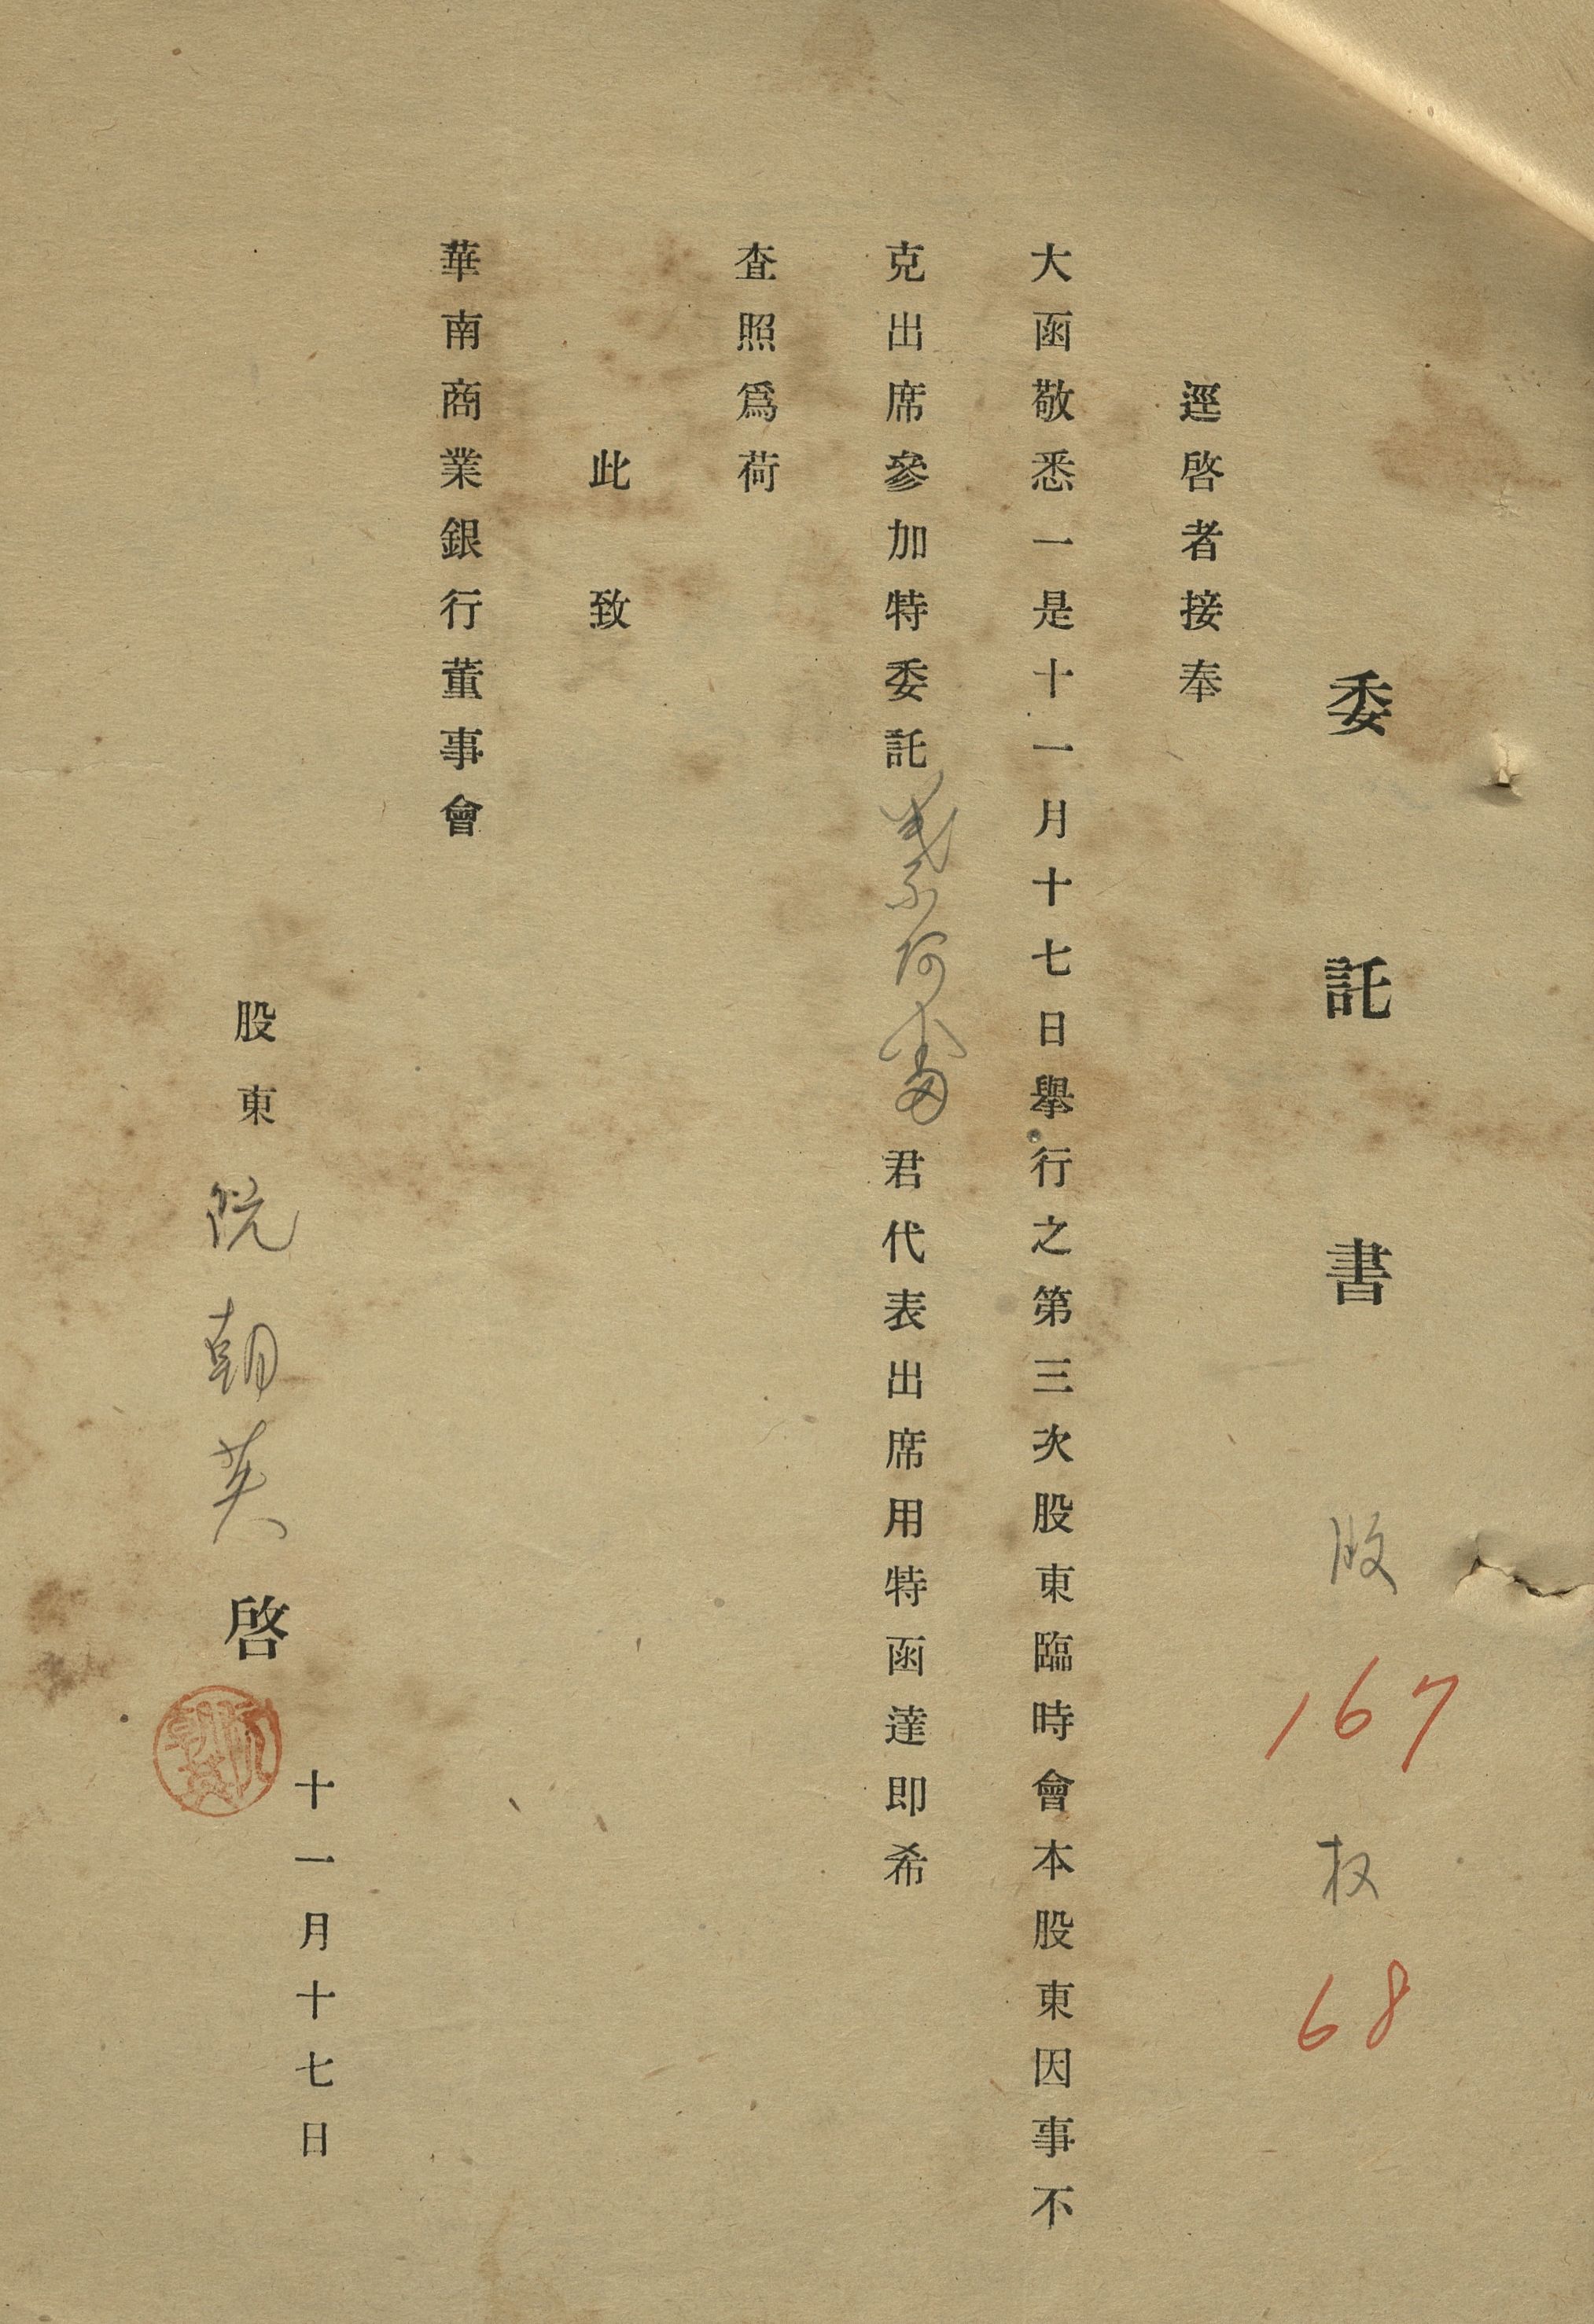 委託書 股 167 权 68
逕啓者接奉
大函敬悉一是十一月十七日舉行之第三次股東臨時會本股東因事不
克出席參加特委託 阿 君代表出席用特函達即希
查照爲荷
此致
華南商業銀行董事會
十一月十七日
股東 阮朝英 啓